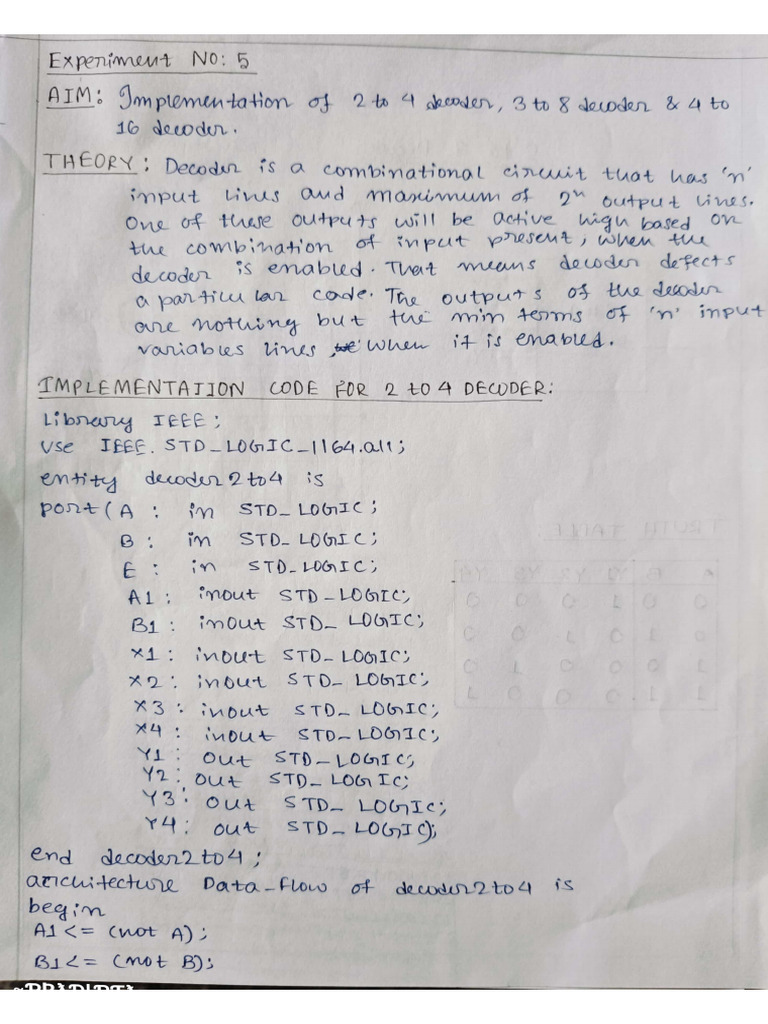 Experiment NO: 5
AIM: Implementation of 2 to 4 decoder, 3 to 8 decoder & 4 to
16 decoder.
THEORY: Decoder is a combinational circuit that has 'n'
input lines and maximum of 2ⁿ output lines.
One of these outputs will be active high based on
the combination of input present, when the
decoder is enabled. That means decoder defects
a particular code. The outputs of the decoder
are nothing but the min terms of 'n' input
variables lines, when it is enabled.
IMPLEMENTATION CODE FOR 2 to 4 DECODER:
Library IEEE;
Use IEEE.STD_LOGIC_1164.all;
entity decoder2to4 is
port(A : in STD_LOGIC;
B : in STD_LOGIC;
E : in STD_LOGIC;
A1 : inout STD_LOGIC;
B1 : inout STD_LOGIC;
X1 : inout STD_LOGIC;
X2 : inout STD_LOGIC;
X3 : inout STD_LOGIC;
X4 : inout STD_LOGIC;
Y1 : out STD_LOGIC;
Y2 : out STD_LOGIC;
Y3 : out STD_LOGIC;
Y4 : out STD_LOGIC);
end decoder2to4;
architecture Data_flow of decoder2to4 is
begin
A1 <= (not A);
B1 <= (not B);